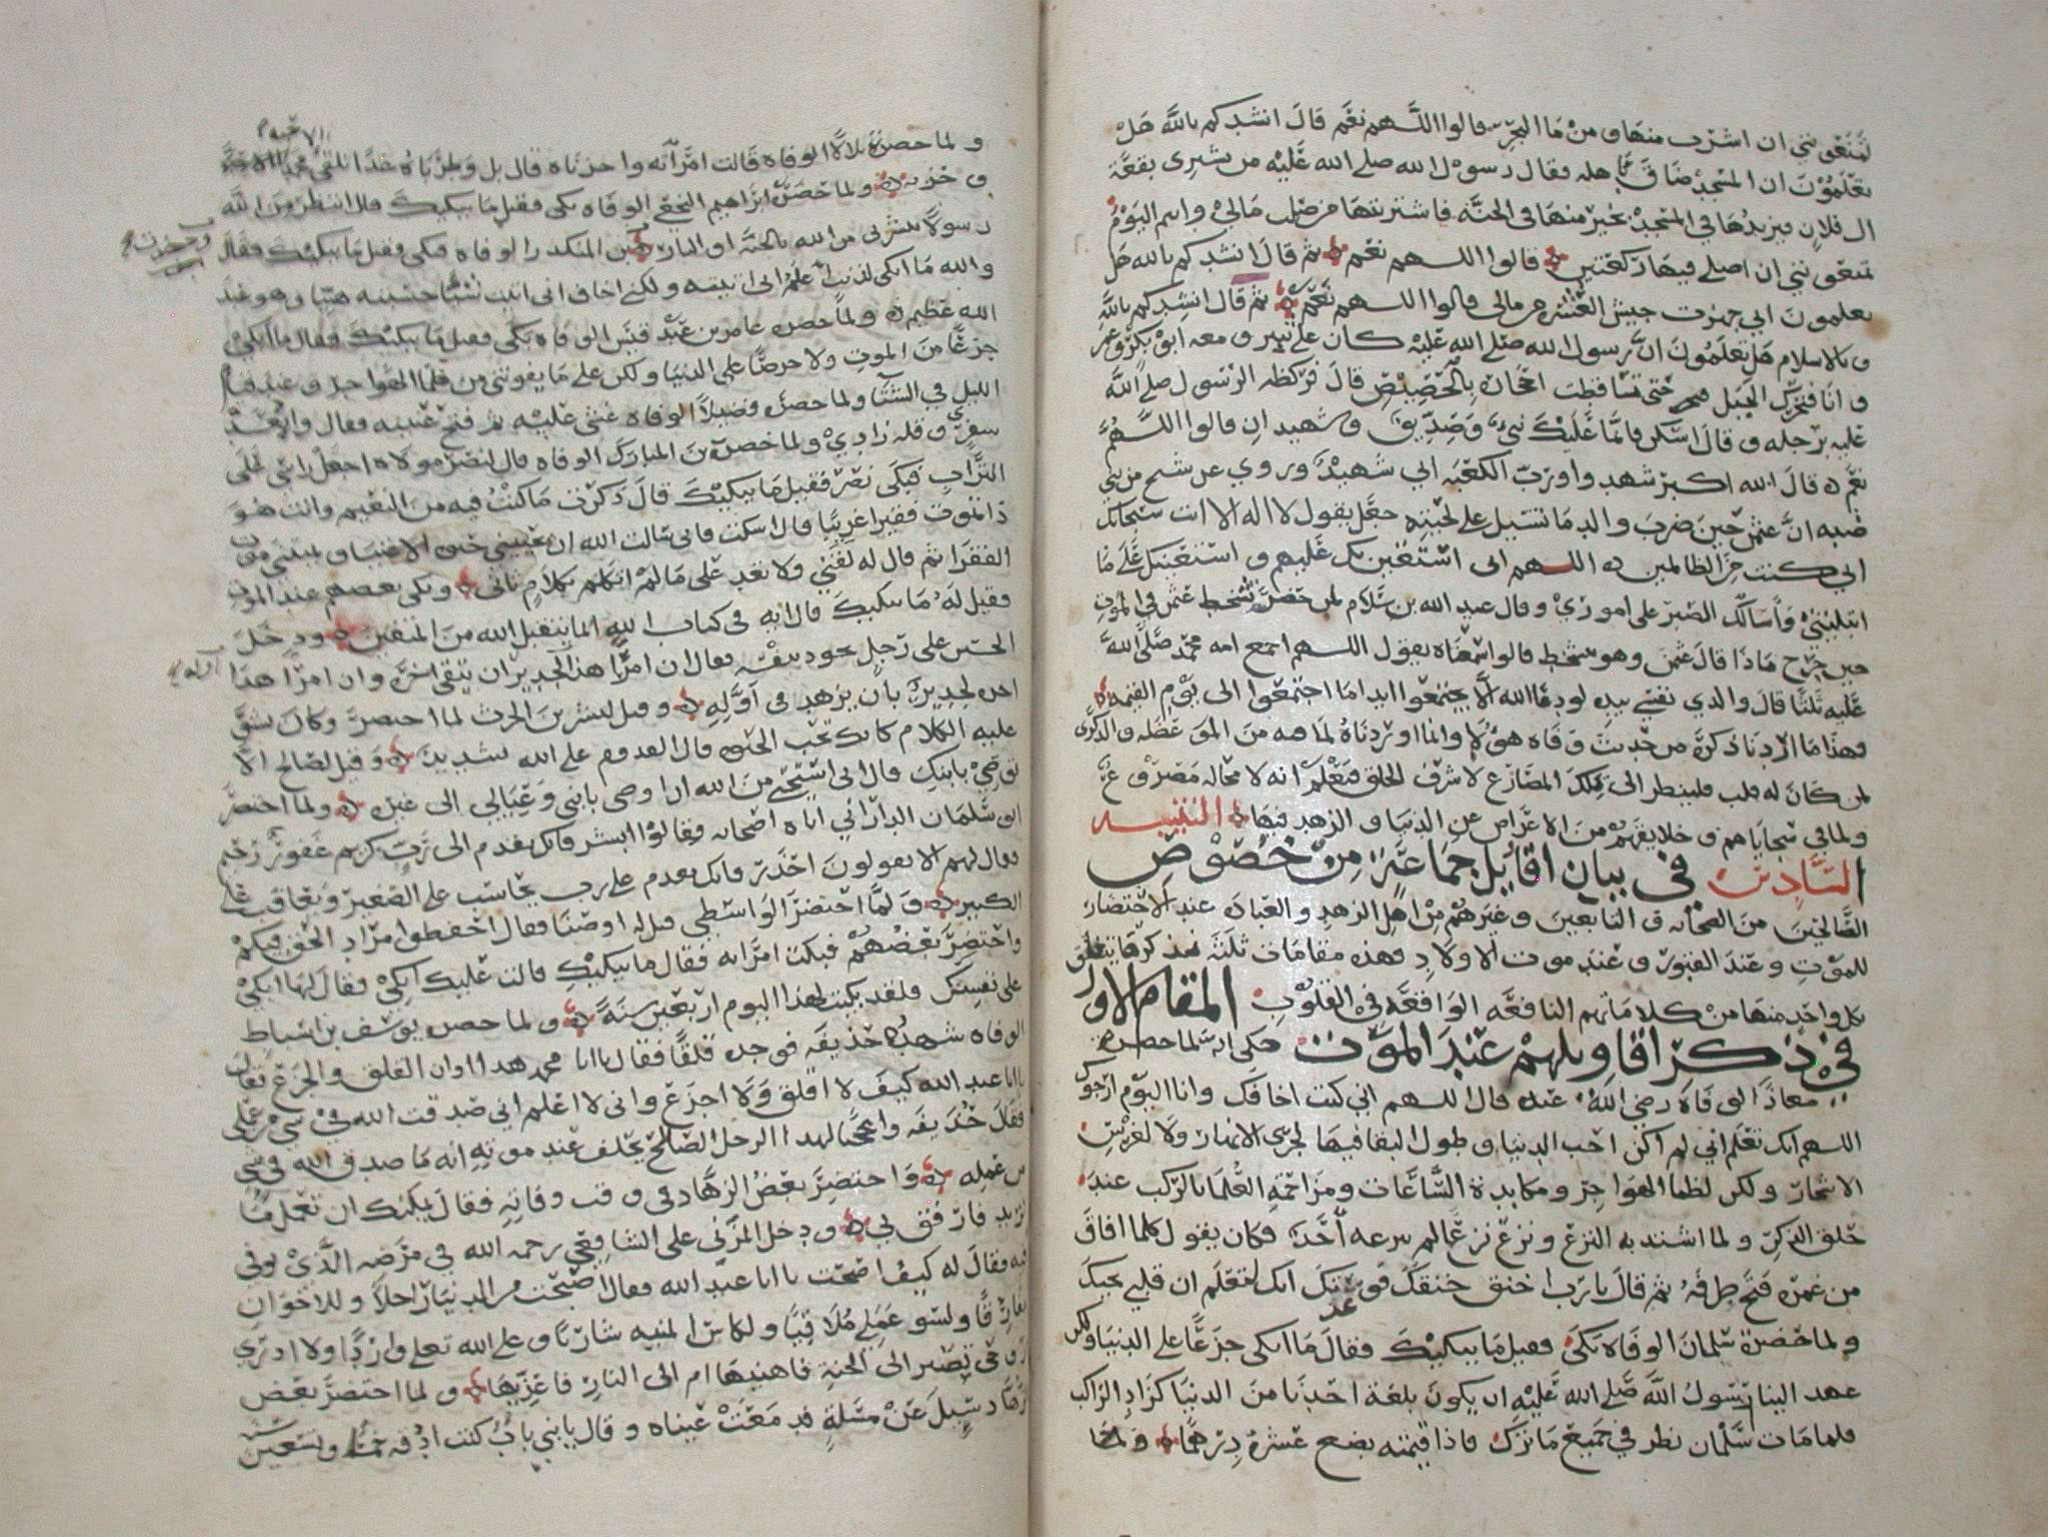 تمنعونني ان اشرب منها ومن ما البحر قالوا اللهم نعم قال انشدكم بالله هل
تعلمون ان المسجد ضاق باهله فقال رسول الله صلى الله عليه من يشتري بقعة
ال فلان فيزيدها في المسجد بخير منها في الجنة فاشتريتها من صلب مالي وانتم اليوم
تمنعونني ان اصلي فيها ركعتين قالوا اللهم نعم ثم قال انشدكم بالله هل
تعلمون اني جهزت جيش العسره من مالي قالوا اللهم نعم ثم قال انشدكم بالله
وبالاسلام هل تعلمون ان رسول الله صلى الله عليه كان على ثبير ومعه ابو بكر وعمر
وانا فتحرك الجبل حتى تساقطت احجاره بالحضيض قال فركظه الرسول صلى الله
عليه برجله وقال اسكن فانما عليك نبي وصديق وشهيدان قالوا اللهم
نعم قال الله اكبر شهدوا ورب الكعبه اني شهيد وروي عن شيخ من بني
ضبه ان عثمن حين ضرب والدما تسيل على لحيته جعل يقول لا اله الا انت سبحانك
اني كنت من الظالمين اللهم اني استعين بك عليهم واستعينك على ما
ابتليتني واسالك الصبر على اموري وقال عبد الله بن سلام لمن حضر تشحط عثمن في الموت
حين جرح ماذا قال عثمن وهو يتشحط قالوا سمعناه يقول اللهم اجمع امه محمد صلى الله
عليه ثلثا قال والذي نفسي بيده لو دعا الله الا يجتمعوا ابدا ما اجتمعوا الى يوم القيمه
فهذا ما اردنا ذكره من حديث وفاه هؤلا وانما اوردناه لما فيه من الموعظه والذكرى
لمن كان له قلب فلينظر الى تلك المصارع لاشرف الخلق فيعلم انه لا محاله مصروع
ولما في سجاياهم وخلايقهم من الاعراض عن الدنيا والزهد فيها التنبيه
السادس في بيان اقاويل جماعة من خصوص
الصالحين من الصحابه والتابعين وغيرهم من اهل الزهد والعباده عند الاحتضار
للموت وعند القبور وعند موت الاولاد فهذه مقامات ثلثة نذكر ما يتعلق
بكل واحد منها من كلاماتهم النافعه الواقعه في القلوب المقام الاول
في ذكر اقاويلهم عند الموت حكي انه لما حضرت
معاذا الوفاه رضي الله عنه قال اللهم اني كنت اخافك وانا اليوم ارجوك
اللهم انك تعلم اني لم اكن احب الدنيا وطول البقا فيها لجري الانهار ولا لغرس
الاشجار ولكن لظما الهواجر ومكابدة الساعات ومزاحمة العلما بالركب عند
حلق الذكر ولما اشتد به النزع ونزع نزعا لم ينزعه احد فكان يقول كلما افاق
من غمره فتح طرفه ثم قال يا رب اخنق خنقك فوعزتك انك لتعلم ان قلبي يحبك
ولما حضرة سلمان الوفاه بكى فقيل ما يبكيك فقال ما ابكي جزعا على الدنيا ولكن
عهد الينا رسول الله صلى الله عليه ان يكون بلغة احدنا من الدنيا كزاد الراكب
فلما مات سلمان نظر في جميع ما ترك فاذا قيمته بضع عشرة درهما ولما
ولما حضرة بلالا الوفاه قالت امرأته واحزناه قال بل وطرباه غدا نلقى الاحبه
وحزبه ولما حضر ابراهيم النخعي الوفاه بكى فقيل ما يبكيك قال انتظر من الله
رسولا يبشرني من الله بالجنة او النار ابن المنكدر الوفاه فبكى فقيل ما يبكيك فقال
وحضرت
والله ما ابكي لذنب اعلم اني اتيته ولكني اخاف اني اتيت شيئا حسبته هينا وهو عند
الله عظيم ولما حضر عامر بن عبد قيس الوفاه بكى فقيل ما يبكيك فقال ما ابكي
جزعا من الموت ولا حرصا على الدنيا ولكن على ما يفوتني من ظما الهواجر وعند قيام
الليل في الشتا ولما حضر فضيلا الوفاه غشي عليه ثم فتح عينيه فقال وابعد
سفري وقله زادي ولما حضر بن المبارك الوفاه قال لنصر مولاه اجعل راسي على
التراب فبكى نصر فقيل ما يبكيك قال ذكرت ما كنت فيه من النعيم وانت هو
ذا تموت فقيرا غريبا قال اسكت فاني سالت الله ان يحييني حيوه الاغنيا ويميتني موت
الفقرا ثم قال له لقني ولا تعد علي ما لم اتكلم بكلام ثاني وبكى بعضهم عند الموت
فقيل له ما يبكيك قال ايه في كتاب الله انما يتقبل الله من المتقين ودخل
الحسن على رجل يجود بنفسه فقال ان امرا هذا لجدير ان يتقى اخره وان امرا هذا
اخره لجدير بان يزهد في اوله وقيل لبشر بن الحرث لما احتضر وكان يشق
عليه الكلام كانك تحب الحيوه قال القدوم على الله شديد وقيل لصالح الا
توصي بابنك قال اني استحي من الله ان اوصي بابني وعيالي الى غيره ولما احتضر
ابو سلمان الداراني اتاه اصحابه فقالوا ابشر فانك تقدم الى رب كريم غفور رحيم
فقال لهم الا تقولون احذر فانك تقدم على رب يحاسب على الصغير ويعاقب على
الكبير ولما احتضر الواسطي قيل له اوصنا فقال احفظوا مراد الحق فيكم
واحتضر بعضهم فبكت امرأته فقال ما يبكيك قالت عليك ابكي فقال لها ابكي
على نفسك فلقد بكيت لهذا اليوم اربعين سنة ولما حضر يوسف بن اسباط
الوفاه شهده حذيفه فوجده قلقا فقال يا ابا محمد هذا اوان القلق والجزع فقال
يا ابا عبد الله كيف لا اقلق ولا اجزع واني لا اعلم اني صدقت الله في شي من عملي
فقال حذيفه واعجبا لهذا الرجل الصالح يحلف عند موته انه ما صدق الله في شي
من عمله واحتضر بعض الزهاد في وقت وفاته فقال يمكنك ان تعمل ما
تريد فارفق بي ودخل المزني على الشافعي رحمه الله في مرضه الذي توفي
فيه فقال له كيف اصبحت يا ابا عبد الله فقال اصبحت من الدنيا راحلا وللاخوان
مفارقا ولسو عملي ملاقيا ولكاس المنيه شاربا وعلى الله تعلى واردا ولا ادري
روحي تصير الى الجنة فاهنيها ام الى النار فاعزيها ولما احتضر بعض
سيل عن مسلة فدمعت عيناه وقال يا بني باب كنت ادقه خمسا وتسعين
سنه